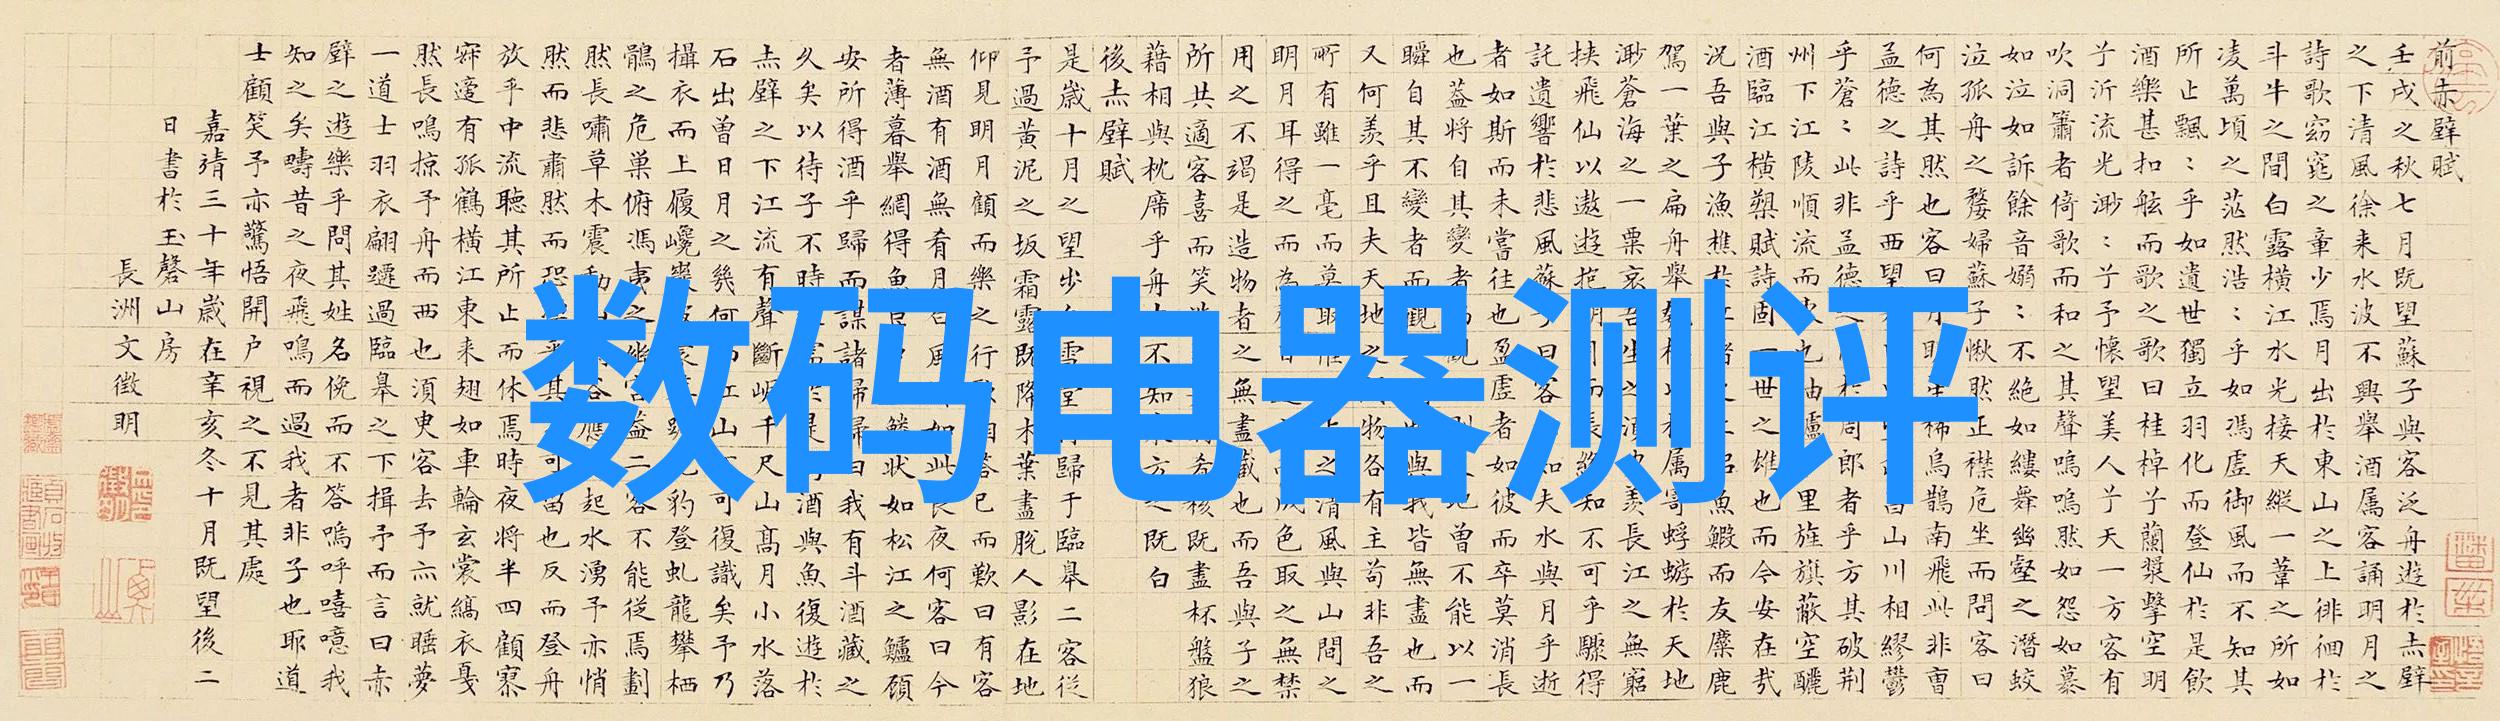 前赤壁賦
壬戌之秋七月既望蘇子與客泛舟遊於赤壁
之下清風徐来水波不興舉酒属客誦明月之
詩歌窈窕之章少焉月出於東山之上徘徊於
斗牛之間白露橫江水光接天縱一葦之所如
凌萬頃之茫然浩〻乎如馮虛御風而不知其
所止飄〻乎如遺世獨立羽化而登仙於是飲
酒樂甚扣舷而歌之歌曰桂棹兮蘭槳擊空明
兮泝流光渺〻兮予懷望美人兮天一方客有
吹洞簫者倚歌而和之其聲嗚嗚然如怨如慕
如泣如訴餘音嫋〻不絶如縷舞幽壑之潛蛟
泣孤舟之嫠婦蘇子愀然正襟危坐而問客曰
何為其然也客曰月明星稀烏鵲南飛此非曹
孟德之詩乎西望昌山川相繆鬱
乎蒼〻此非孟德之於周郎者乎方其破荆
州下江陵順流而東也舳艫里旌旗蔽空釃
酒臨江橫槊賦詩固一世之雄也而今安在哉
况吾與子漁樵於江渚之上侣魚鰕而友麋鹿
駕一葉之扁舟舉匏樽以相属寄蜉蝣於天地
渺蒼海之一粟哀吾生之須臾羨長江之無窮
挟飛仙以遨遊抱明月而長終知不可乎驟得
託遺響於悲風蘇子曰客知夫水與月乎逝
者如斯而未嘗往也盈虛者如彼而卒莫消長
也蓋將自其變者而觀則天地曾不能以一
瞬自其不變者而觀與我皆無盡也而
又何羨乎且夫天地之間物各有主苟非吾之
所有雖一毫而莫取惟上之清風與山間之
明月耳得之而為成色取之無禁
用之不竭是造物者之無盡藏也而吾與子之
所共適客喜而笑洗肴核既盡杯盤狼
藉相與枕席乎舟中不知東方之既白
後赤壁賦
是歲十月之望步自雪堂將歸于臨皋二客從
予過黃泥之坂霜露既降木葉盡脫人影在地
仰見明月顧而樂之行歌相答已而歎曰有客
無酒有酒無肴月白風如此良夜何客曰今
者薄暮舉網得魚巨鱗狀如松江之鱸顧
安所得酒乎歸而謀諸婦婦曰我有斗酒藏之
久矣以待子不時之需於是酒與魚復遊於
赤壁之下江流有聲斷岸千尺山高月小水落
石出曾日月之幾何而江山可復識矣予乃
攝衣而上履巉巖豹登虬龍攀栖
鶻之危巢俯馮夷之幽宮蓋二客不能從焉劃
然長嘯草木震動山谷應起水湧予亦悄
然而悲肅然而恐乎其可留也反而登舟
放乎中流聽其所止而休焉時夜將半四顧寂
寥適有孤鶴橫江東来翅如車輪玄裳縞衣戛
然長鳴掠予舟而西也須臾客去予亦就睡夢
一道士羽衣翩躚過臨皋之下揖予而言曰赤
壁之遊樂乎問其姓名俛而不答嗚呼嘻噫我
知之矣疇昔之夜飛鳴而過我者非子也耶道
士顧笑予亦驚悟開户視之不見其處
嘉靖三十年歲在辛亥冬十月既望後二
日書於玉磬山房
長洲文徵明
数码电器测评